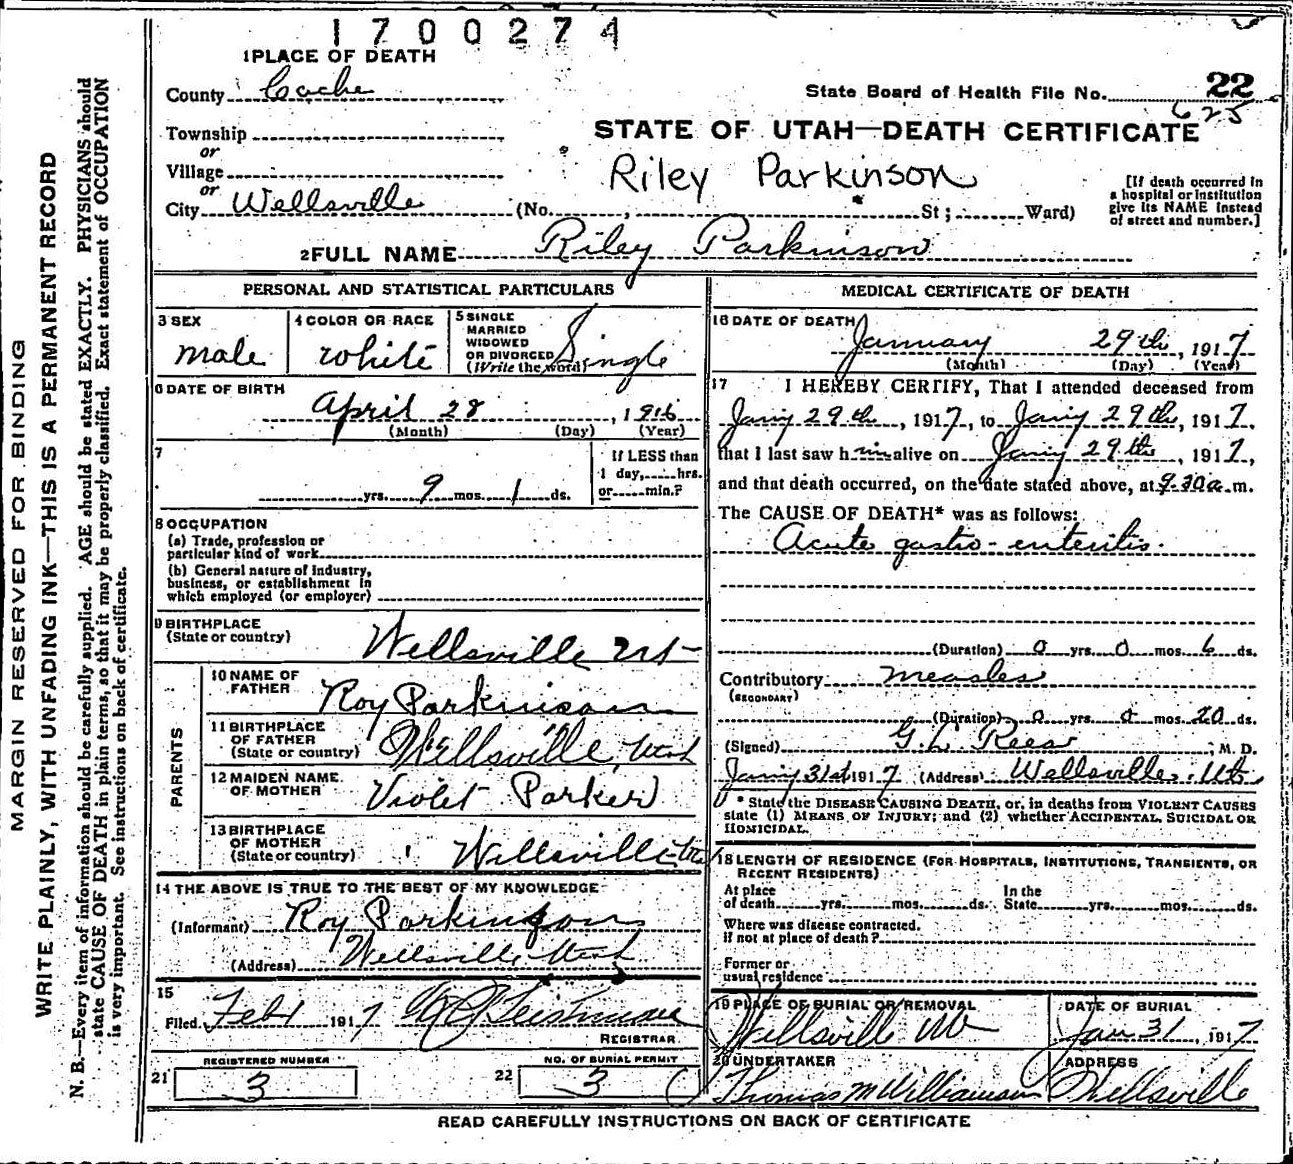 1700274
1 PLACE OF DEATH
County Cache
State Board of Health File No. 22
625
Township
or
Village
or
City Wellsville
STATE OF UTAH—DEATH CERTIFICATE
Riley Parkinson
(No. , St ; Ward)
[If death occurred in
a hospital or institution
give its NAME instead
of street and number.]
2 FULL NAME Riley Parkinson
PERSONAL AND STATISTICAL PARTICULARS
3 SEX
male
4 COLOR OR RACE
white
5 SINGLE
MARRIED
WIDOWED
OR DIVORCED
(Write the word) Single
6 DATE OF BIRTH
April 28, 1916
(Month) (Day) (Year)
7
yrs. 9 mos. 1 ds.
If LESS than
1 day, hrs.
or min.?
8 OCCUPATION
(a) Trade, profession or
particular kind of work
(b) General nature of industry,
business, or establishment in
which employed (or employer)
9 BIRTHPLACE
(State or country)
Wellsville Ut
PARENTS
10 NAME OF
FATHER
Roy Parkinson
11 BIRTHPLACE
OF FATHER
(State or country)
Wellsville, Utah
12 MAIDEN NAME
OF MOTHER
Violet Parker
13 BIRTHPLACE
OF MOTHER
(State or country)
Wellsville
14 THE ABOVE IS TRUE TO THE BEST OF MY KNOWLEDGE
(Informant) Roy Parkinson
(Address) Wellsville Utah
15
Filed Feb 1 1917
REGISTRAR
REGISTERED NUMBER
21 3
NO. OF BURIAL PERMIT
22 3
MEDICAL CERTIFICATE OF DEATH
16 DATE OF DEATH
January 29th, 1917
(Month) (Day) (Year)
17 I HEREBY CERTIFY, That I attended deceased from
Jany 29th, 1917, to Jany 29th, 1917,
that I last saw him alive on Jany 29th, 1917,
and that death occurred, on the date stated above, at 9-30 a.m.
The CAUSE OF DEATH* was as follows:
Acute gastro-enteritis.
(Duration) 0 yrs. 0 mos. 6 ds.
Contributory measles
(SECONDARY)
(Duration) 0 yrs. 0 mos. 20 ds.
(Signed) G. L. Rees, M. D.
Jany 31st 1917 (Address) Wellsville, Ut
* State the DISEASE CAUSING DEATH, or, in deaths from VIOLENT CAUSES
state (1) MEANS OF INJURY; and (2) whether ACCIDENTAL, SUICIDAL OR
HOMICIDAL.
18 LENGTH OF RESIDENCE (FOR HOSPITALS, INSTITUTIONS, TRANSIENTS, OR
RECENT RESIDENTS)
At place
of death yrs. mos. ds.
In the
State yrs. mos. ds.
Where was disease contracted,
if not at place of death?
Former or
usual residence
19 PLACE OF BURIAL OR REMOVAL
Wellsville Ut
DATE OF BURIAL
Jan 31, 1917
20 UNDERTAKER
Thomas M Williamson
ADDRESS
Wellsville
READ CAREFULLY INSTRUCTIONS ON BACK OF CERTIFICATE
MARGIN RESERVED FOR BINDING
WRITE PLAINLY, WITH UNFADING INK—THIS IS A PERMANENT RECORD
N. B.—Every item of information should be carefully supplied. AGE should be stated EXACTLY. PHYSICIANS should
state CAUSE OF DEATH in plain terms, so that it may be properly classified. Exact statement of OCCUPATION
is very important. See instructions on back of certificate.